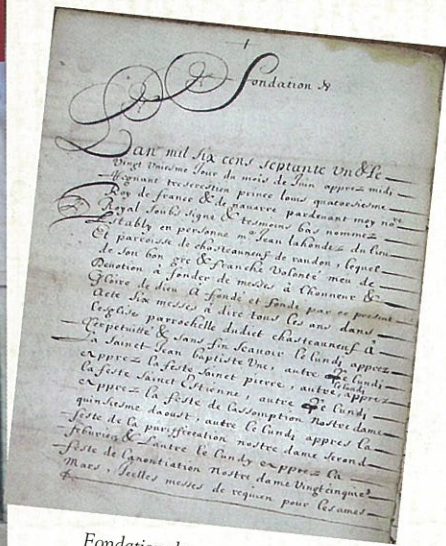 Fondation &
Lan mil six cens septante un & le
vingt uniesme Jour du mois de Juin apprez midi
Regnant tres crestien prince louis quatorsiesme
Roy de france & de navarre pardevant moy no.re
Royal soubz signe & tesmoins bas nommez
Estably en personne m.e Jean lahondez du lieu
Et parroisse de chasteauneuf de randon, lequel
de son bon gre & franche volonté meu de
Devotion à fonder de messes à lhonneur &
Gloire de dieu a fonde et fonde par ce present
Acte six messes à dire tous les ans dans
Lesglise parrochelle dudict chasteauneuf à
Perpetuitté & sans fin scavoir le lundi apprez
la Sainct Jean baptiste vne, autre le lundi
apprez la feste sainct pierre, autre le lundi apprez
la feste sainct Estienne, autre le lundi
apprez la feste de lassomption nostre dame
quinsiesme daoust, autre le lundi appres la
feste de la puriffication nostre dame second
febvrier & lautre le lundy apprez la
feste de lanontiation nostre dame vingt cinquie.e
Mars, Jcelles messes de requien pour les ames
Fondation